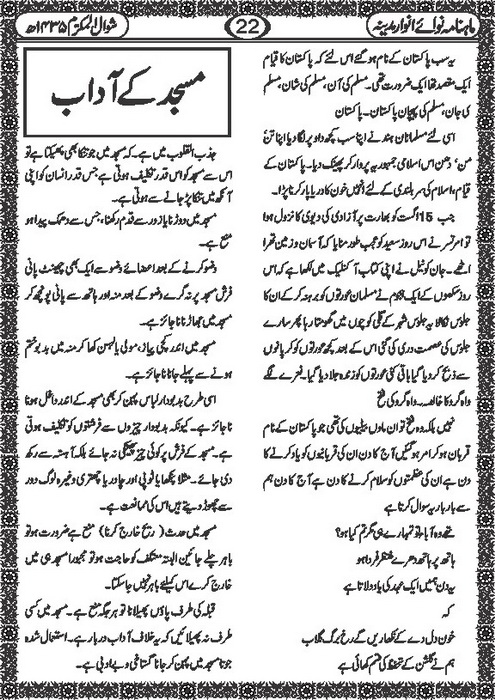 ماہنامہ نوائے انوار مدینہ
22
شوال المکرم ۱۴۳۵ھ
یہ سب پاکستان کے نام ہو گئے اس لئے کہ پاکستان کا قیام
ایک مقصد تھا ایک ضرورت تھی۔ مسلم کی آن، مسلم کی شان، مسلم
کی جان، مسلم کی پہچان پاکستان۔ پاکستان
اسی لئے مسلمانان ہند نے اپنا سب کچھ داو پر لگا دیا اپنا تن
من' دھن اس اسلامی جمہوریہ پر وار کر پھینک دیا۔ پاکستان کے
قیام، اسلام کی سربلندی کے لئے انہیں خون کا دریا پار کرنا پڑا۔
جب 15 اگست کو بھارت پر آزادی کی دیوی کا نزول ہوا
تو امرتسر نے اس روز سعید کو عجب طور منایا کہ آسمان و زمین تھرا
اٹھے۔ جان کونیل نے اپنی کتاب آکنلیک میں لکھا ہے کہ اس
روز سکھوں کے ایک ہجوم نے مسلمان عورتوں کو برہنہ کر کے ان کا
جلوس نکالا یہ جلوس شہر کے گلی کوچوں میں گھومتا رہا پھر سارے
جلوس کی عصمت دری کی گئی اس کے بعد کچھ عورتوں کو کرپانوں
سے ذبح کر دیا گیا باقی کئی عورتوں کو زندہ جلا دیا گیا۔ نعرے لگے
واہ گرو کا خالصہ۔ واہ گرو کی فتح
نہیں بلکہ وہ فتح تو ان ماوں بیٹیوں کی تھی جو پاکستان کے نام
قربان ہو کر امر ہو گئیں آج کا دن ان کی قربانیوں کو یاد کرنے کا
دن ہے ان کی عظمتوں کو سلام کرنے کا دن ہے آج کا دن ہم
سے بار بار یہ سوال کرتا ہے
تھے وہ آبا ء تو تمہارے ہی مگر تم کیا ہو؟
ہاتھ پر ہاتھ دھرے منتظر فردا ہو
یہ دن ہمیں ایک عہد کی یاد دلاتا ہے
کہ
خون دل دے کے نکھاریں گے رخ برگ گلاب
ہم نے گلشن کے تحفظ کی قسم کھائی ہے
مسجد کے آداب
جذب القلوب میں ہے۔ کہ مسجد میں جو تنکا بھی پھینکتا ہے تو
اس سے مسجد کو اس قدر تکلیف ہوتی ہے جس قدر انسان کو اپنی
آنکھ میں تنکا پڑ جانے سے ہوتی ہے۔
مسجد میں دوڑنا یا زور سے قدم رکھنا، جس سے دھمک پیدا ہو
منع ہے۔
وضو کرنے کے بعد اعضائے وضو سے ایک بھی چھینٹ پانی
فرش مسجد پر نہ گرے وضو کے بعد منہ اور ہاتھ سے پانی پونچھ کر
مسجد میں جھاڑنا ناجائز ہے۔
مسجد میں اندر کچی پیاز، مولی یا لہسن کھا کر منہ میں بدبو ختم
ہونے سے پہلے جانا ناجائز ہے۔
اسی طرح بدبودار لباس پہن کر بھی مسجد کے اندر داخل ہونا
ناجائز ہے۔ کیونکہ بدبودار چیزوں سے فرشتوں کو تکلیف ہوتی
ہے۔ مسجد کے فرش پر کوئی چیز پھینکی نہ جائے بلکہ آہستہ سے رکھ
دی جائے۔ مثلا پنکھا یا ٹوپی اور چادر یا چھتری وغیرہ لوگ دور
سے چھوڑ دیتے ہیں اس کی ممانعت ہے۔
مسجد میں حدث (ریح خارج کرنا) منع ہے ضرورت ہو تو
باہر چلے جائیں البتہ معتکف کو حاجت ہو تو مجبورا مسجد ہی میں
خارج کرے اس کیلئے باہر نہیں جا سکتا۔
قبلہ کی طرف پاؤں پھیلانا تو ہر جگہ منع ہے۔ مسجد میں کسی
طرف نہ پھیلائیں کہ یہ خلاف آداب دربار ہے۔ استعمال شدہ
جوتا مسجد میں پہن کر جانا گستاخی و بے ادبی ہے۔